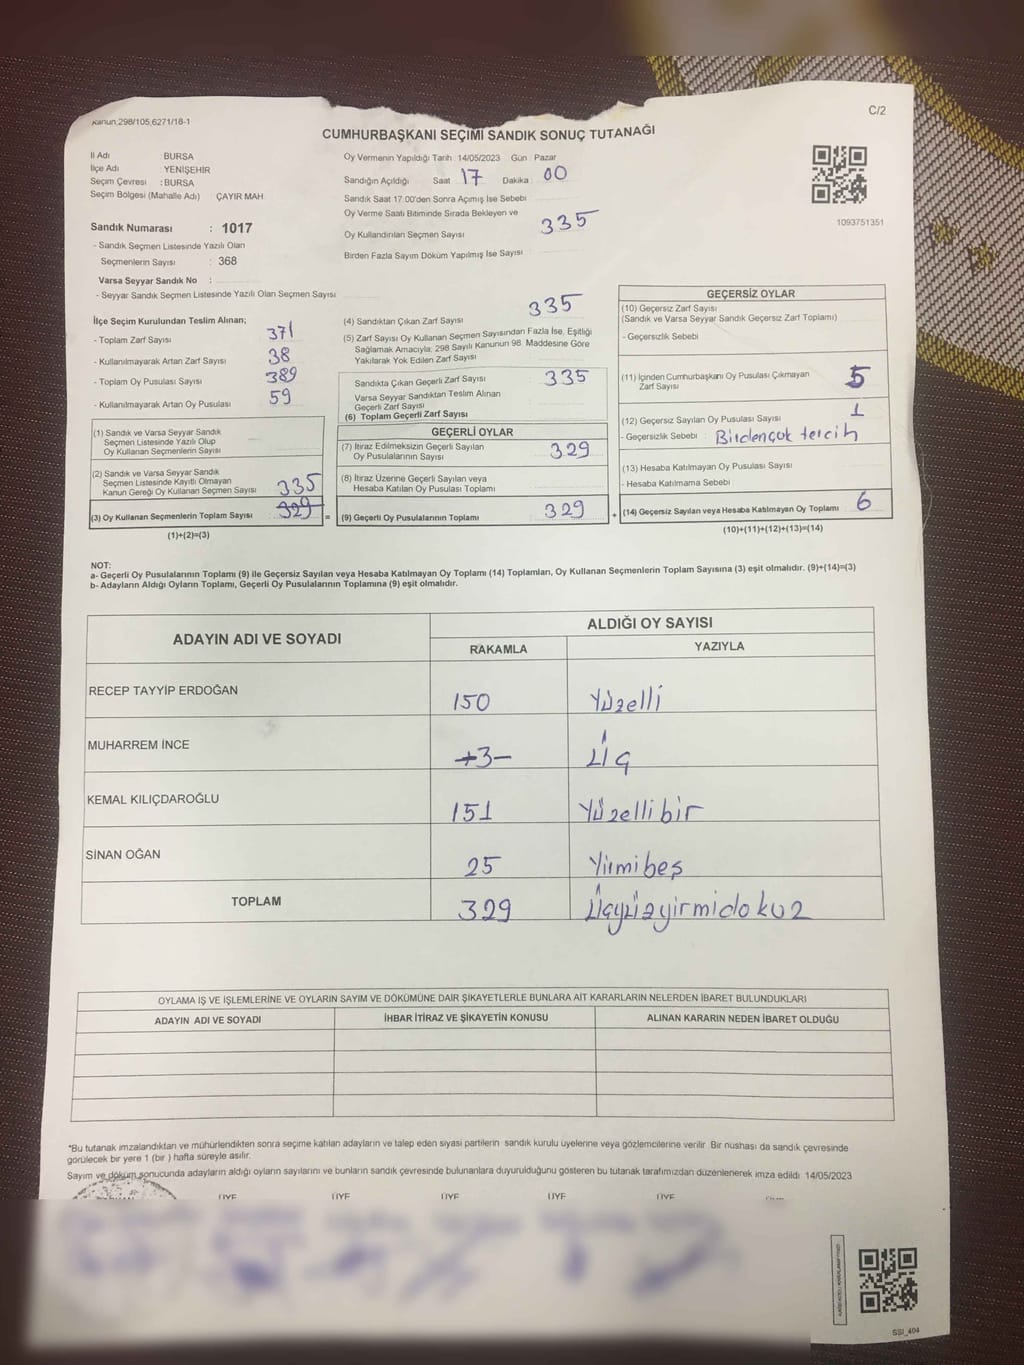 Kanun:298/105,6271/18-1
C/2
CUMHURBAŞKANI SEÇİMİ SANDIK SONUÇ TUTANAĞI
İl Adı BURSA
İlçe Adı YENİŞEHİR
Seçim Çevresi : BURSA
Seçim Bölgesi (Mahalle Adı) ÇAYIR MAH
Sandık Numarası : 1017
- Sandık Seçmen Listesinde Yazılı Olan
Seçmenlerin Sayısı : 368
Varsa Seyyar Sandık No :
- Seyyar Sandık Seçmen Listesinde Yazılı Olan Seçmen Sayısı
Oy Vermenin Yapıldığı Tarih 14/05/2023 Gün : Pazar
Sandığın Açıldığı Saat 17 Dakika 00
Sandık Saat 17:00'den Sonra Açımış İse Sebebi
Oy Verme Saati Bitiminde Sırada Bekleyen ve
Oy Kullandırılan Seçmen Sayısı 335
Birden Fazla Sayım Döküm Yapılmış İse Sayısı
1093751351
İlçe Seçim Kurulundan Teslim Alınan;
- Toplam Zarf Sayısı 371
- Kullanılmayarak Artan Zarf Sayısı 38
- Toplam Oy Pusulası Sayısı 389
- Kullanılmayarak Artan Oy Pusulası 59
(1) Sandık ve Varsa Seyyar Sandık
Seçmen Listesinde Yazılı Olup
Oy Kullanan Seçmenlerin Sayısı
(2) Sandık ve Varsa Seyyar Sandık
Seçmen Listesinde Kayıtlı Olmayan
Kanun Gereği Oy Kullanan Seçmen Sayısı 335
(3) Oy Kullanan Seçmenlerin Toplam Sayısı 329 =
(1)+(2)=(3)
(4) Sandıktan Çıkan Zarf Sayısı 335
(5) Zarf Sayısı Oy Kullanan Seçmen Sayısından Fazla İse, Eşitliği
Sağlamak Amacıyla; 298 Sayılı Kanunun 98. Maddesine Göre
Yakılarak Yok Edilen Zarf Sayısı
Sandıkta Çıkan Geçerli Zarf Sayısı 335
Varsa Seyyar Sandıktan Teslim Alınan
Geçerli Zarf Sayısı
(6) Toplam Geçerli Zarf Sayısı
GEÇERLİ OYLAR
(7) İtiraz Edilmeksizin Geçerli Sayılan
Oy Pusulalarının Sayısı 329
(8) İtiraz Üzerine Geçerli Sayılan veya
Hesaba Katılan Oy Pusulası Toplamı
(9) Geçerli Oy Pusulalarının Toplamı 329 +
GEÇERSİZ OYLAR
(10) Geçersiz Zarf Sayısı
(Sandık ve Varsa Seyyar Sandık Geçersiz Zarf Toplamı)
- Geçersizlik Sebebi
(11) İçinden Cumhurbaşkanı Oy Pusulası Çıkmayan
Zarf Sayısı 5
(12) Geçersiz Sayılan Oy Pusulası Sayısı 1
- Geçersizlik Sebebi : Birdençok tercih
(13) Hesaba Katılmayan Oy Pusulası Sayısı
- Hesaba Katılmama Sebebi
(14) Geçersiz Sayılan veya Hesaba Katılmayan Oy Toplamı 6
(10)+(11)+(12)+(13)=(14)
NOT:
a- Geçerli Oy Pusulalarının Toplamı (9) ile Geçersiz Sayılan veya Hesaba Katılmayan Oy Toplamı (14) Toplamları, Oy Kullanan Seçmenlerin Toplam Sayısına (3) eşit olmalıdır. (9)+(14)=(3)
b- Adayların Aldığı Oyların Toplamı, Geçerli Oy Pusulalarının Toplamına (9) eşit olmalıdır.
ADAYIN ADI VE SOYADI ALDIĞI OY SAYISI
RAKAMLA YAZIYLA
RECEP TAYYİP ERDOĞAN 150 Yüzelli
MUHARREM İNCE +3- Üç
KEMAL KILIÇDAROĞLU 151 Yüzellibir
SİNAN OĞAN 25 Yirmibeş
TOPLAM 329 Üçyüzyirmidokuz
OYLAMA İŞ VE İŞLEMLERİNE VE OYLARIN SAYIM VE DÖKÜMÜNE DAİR ŞİKAYETLERLE BUNLARA AİT KARARLARIN NELERDEN İBARET BULUNDUKLARI
ADAYIN ADI VE SOYADI İHBAR İTİRAZ VE ŞİKAYETİN KONUSU ALINAN KARARIN NEDEN İBARET OLDUĞU
*Bu tutanak imzalandıktan ve mühürlendikten sonra seçime katılan adayların ve talep eden siyasi partilerin sandık kurulu üyelerine veya gözlemcilerine verilir. Bir nushası da sandık çevresinde
görülecek bir yere 1 (bir ) hafta süreyle asılır.
Sayım ve döküm sonucunda adayların aldığı oyların sayılarını ve bunların sandık çevresinde bulunanlara duyurulduğunu gösteren bu tutanak tarafımızdan düzenlenerek imza edildi. 14/05/2023
ÜYE ÜYE ÜYE ÜYE ÜYE
SSI_404